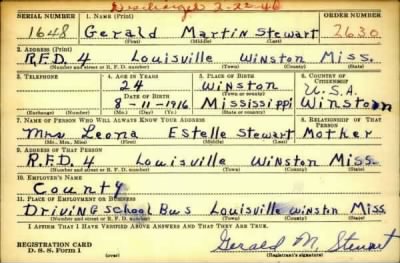 Discharged 2-22-46
SERIAL NUMBER 1. NAME (Print) ORDER NUMBER
1648 Gerald Martin Stewart 2630
(First) (Middle) (Last)
2. ADDRESS (Print)
R.F.D. 4 Louisville Winston Miss.
(Number and street or R. F. D. number) (Town) (County) (State)
3. TELEPHONE 4. AGE IN YEARS 5. PLACE OF BIRTH 6. COUNTRY OF CITIZENSHIP
24 Winston U.S.A.
DATE OF BIRTH (Town or county)
8-11-1916 Mississippi Winston
(Exchange) (Number) (Mo.) (Day) (Yr.) (State or country)
7. NAME OF PERSON WHO WILL ALWAYS KNOW YOUR ADDRESS 8. RELATIONSHIP OF THAT PERSON
Mrs Leona Estelle Stewart Mother
(Mr., Mrs., Miss) (First) (Middle) (Last)
9. ADDRESS OF THAT PERSON
R.F.D. 4 Louisville Winston Miss.
(Number and street or R. F. D. number) (Town) (County) (State)
10. EMPLOYER'S NAME
County
11. PLACE OF EMPLOYMENT OR BUSINESS
Driving School Bus Louisville Winston Miss.
(Number and street or R. F. D. number) (Town) (County) (State)
I AFFIRM THAT I HAVE VERIFIED ABOVE ANSWERS AND THAT THEY ARE TRUE.
REGISTRATION CARD
D. S. S. Form 1 (over) Gerald M. Stewart
(Registrant's signature)